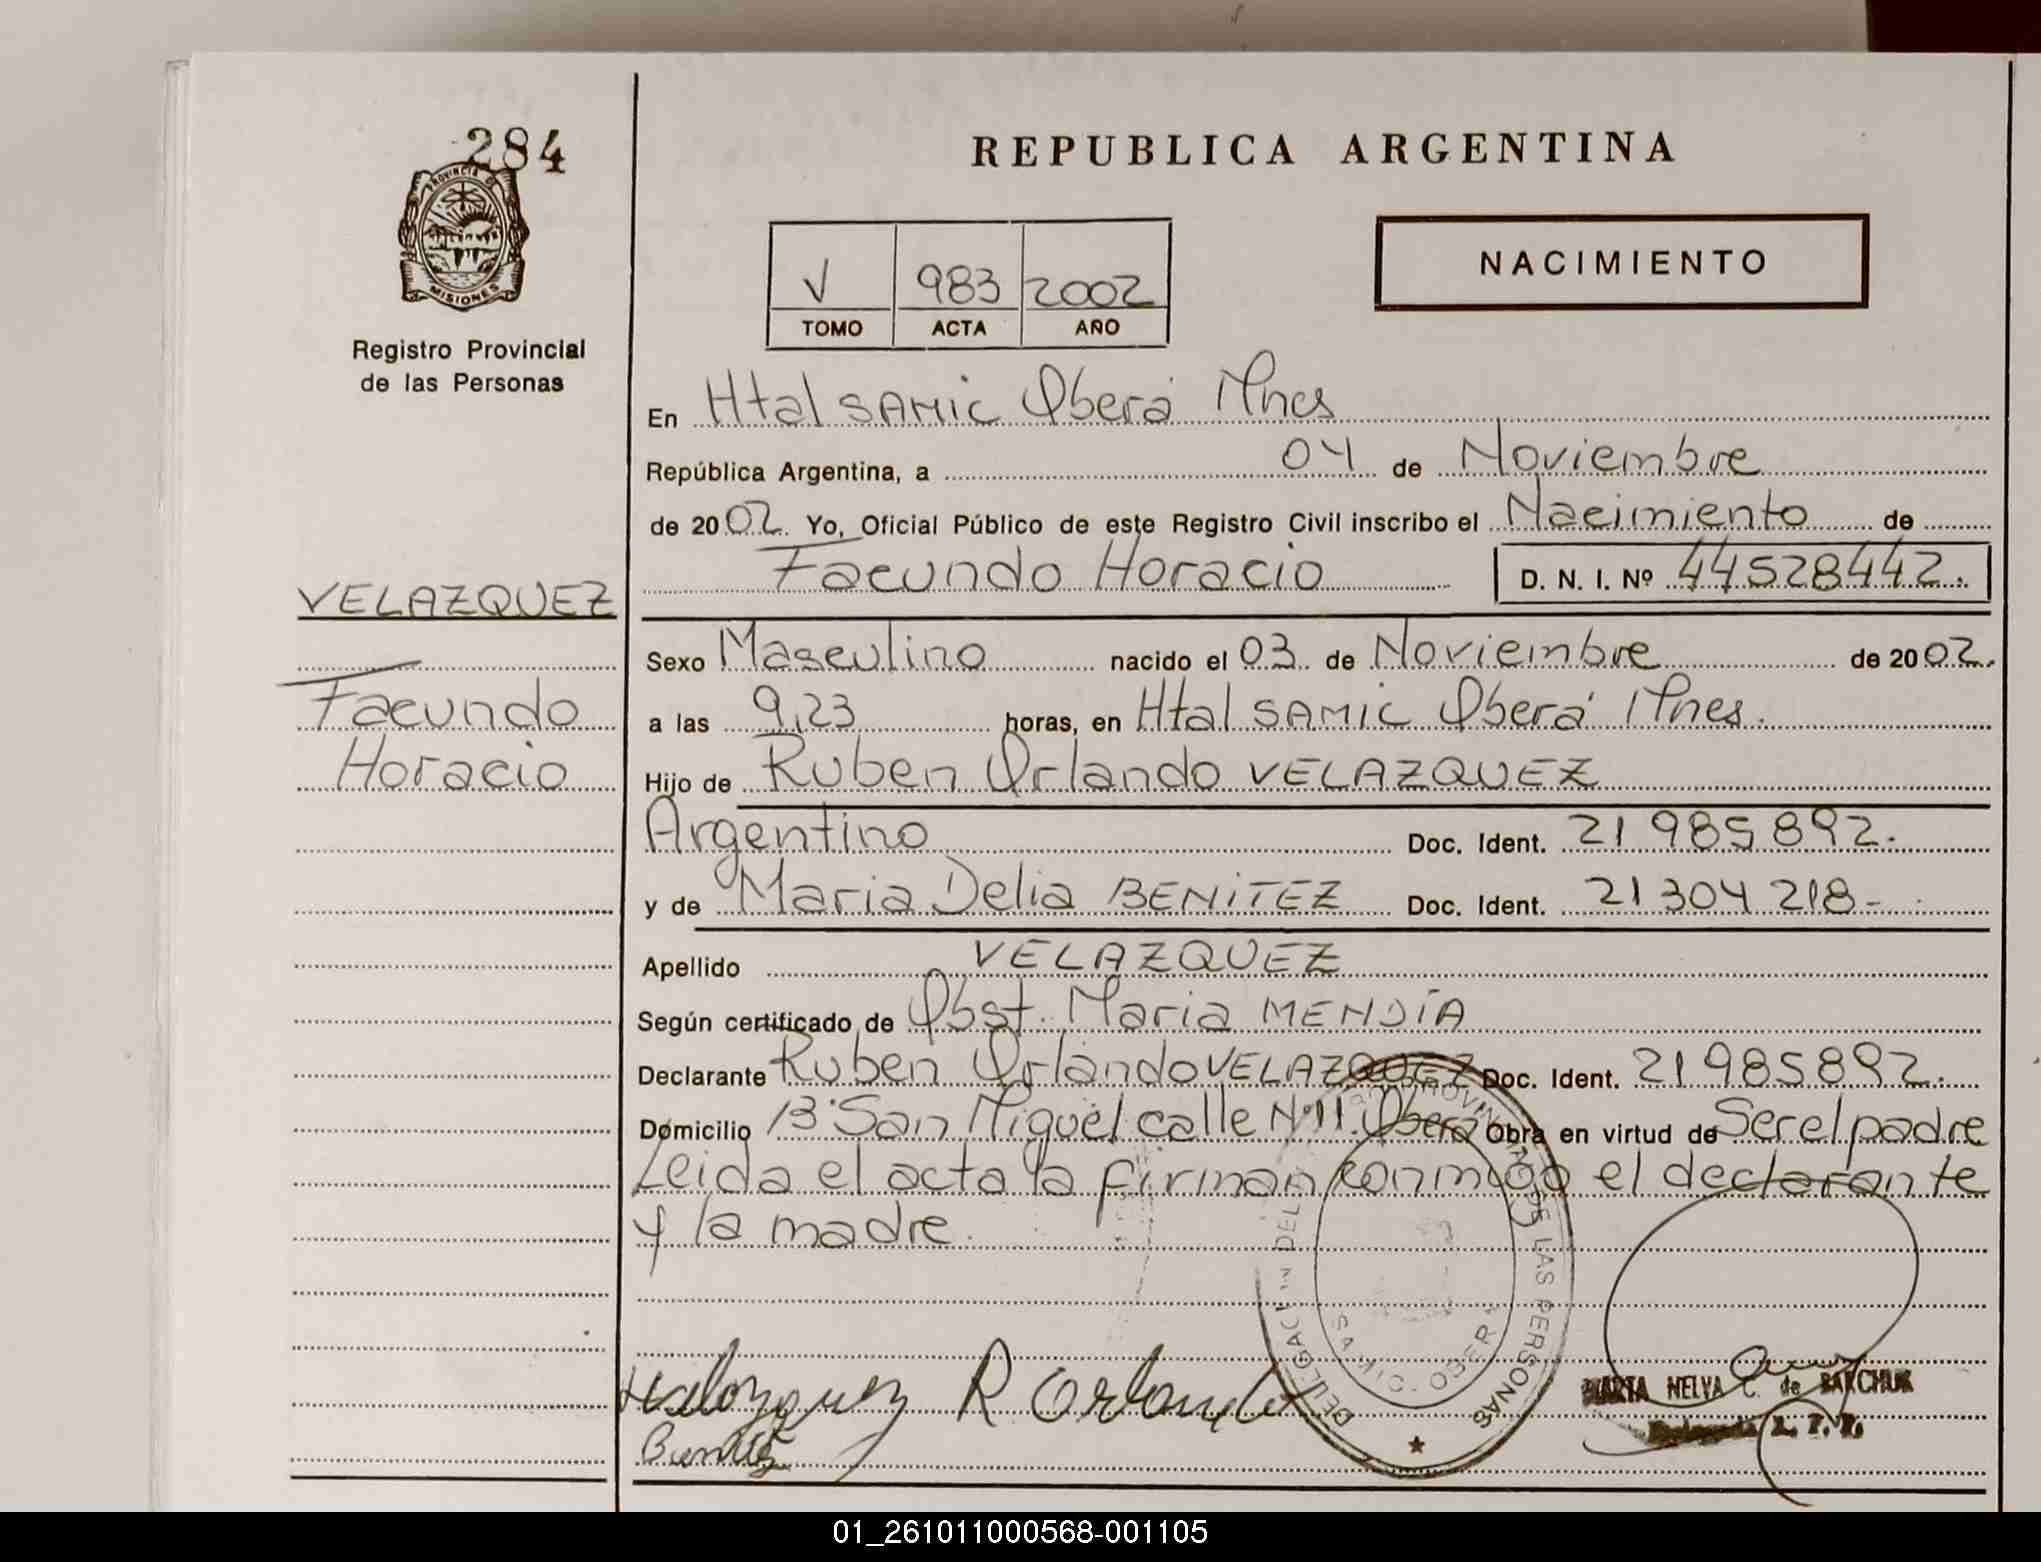 284
PROVINCIA DE
MISIONES
Registro Provincial
de las Personas
VELAZQUEZ
Facundo
Horacio
REPUBLICA ARGENTINA
V 983 2002
TOMO ACTA AÑO
NACIMIENTO
En Htal SAMIC Oberá Mnes
República Argentina, a 04 de Noviembre
de 2002 Yo, Oficial Público de este Registro Civil inscribo el Nacimiento de
Facundo Horacio D. N. I. Nº 44528442.
Sexo Masculino nacido el 03 de Noviembre de 2002.
a las 9,23 horas, en Htal SAMIC Oberá Mnes.
Hijo de Ruben Orlando VELAZQUEZ
Argentino Doc. Ident. 21985892.
y de Maria Delia BENITEZ Doc. Ident. 21304218-
Apellido VELAZQUEZ
Según certificado de Obst. Maria MENDÍA
Declarante Ruben Orlando VELAZQUEZ Doc. Ident. 21985892.
Domicilio Bº San Miguel calle Nº 11 Oberá Obra en virtud de Ser el padre
Leida el acta la firman conmigo el declarante
y la madre.
Velazquez R Orlando
Benitez
PROVINCIAL DE LAS PERSONAS
MARTA NELVA C. de
01_261011000568-001105